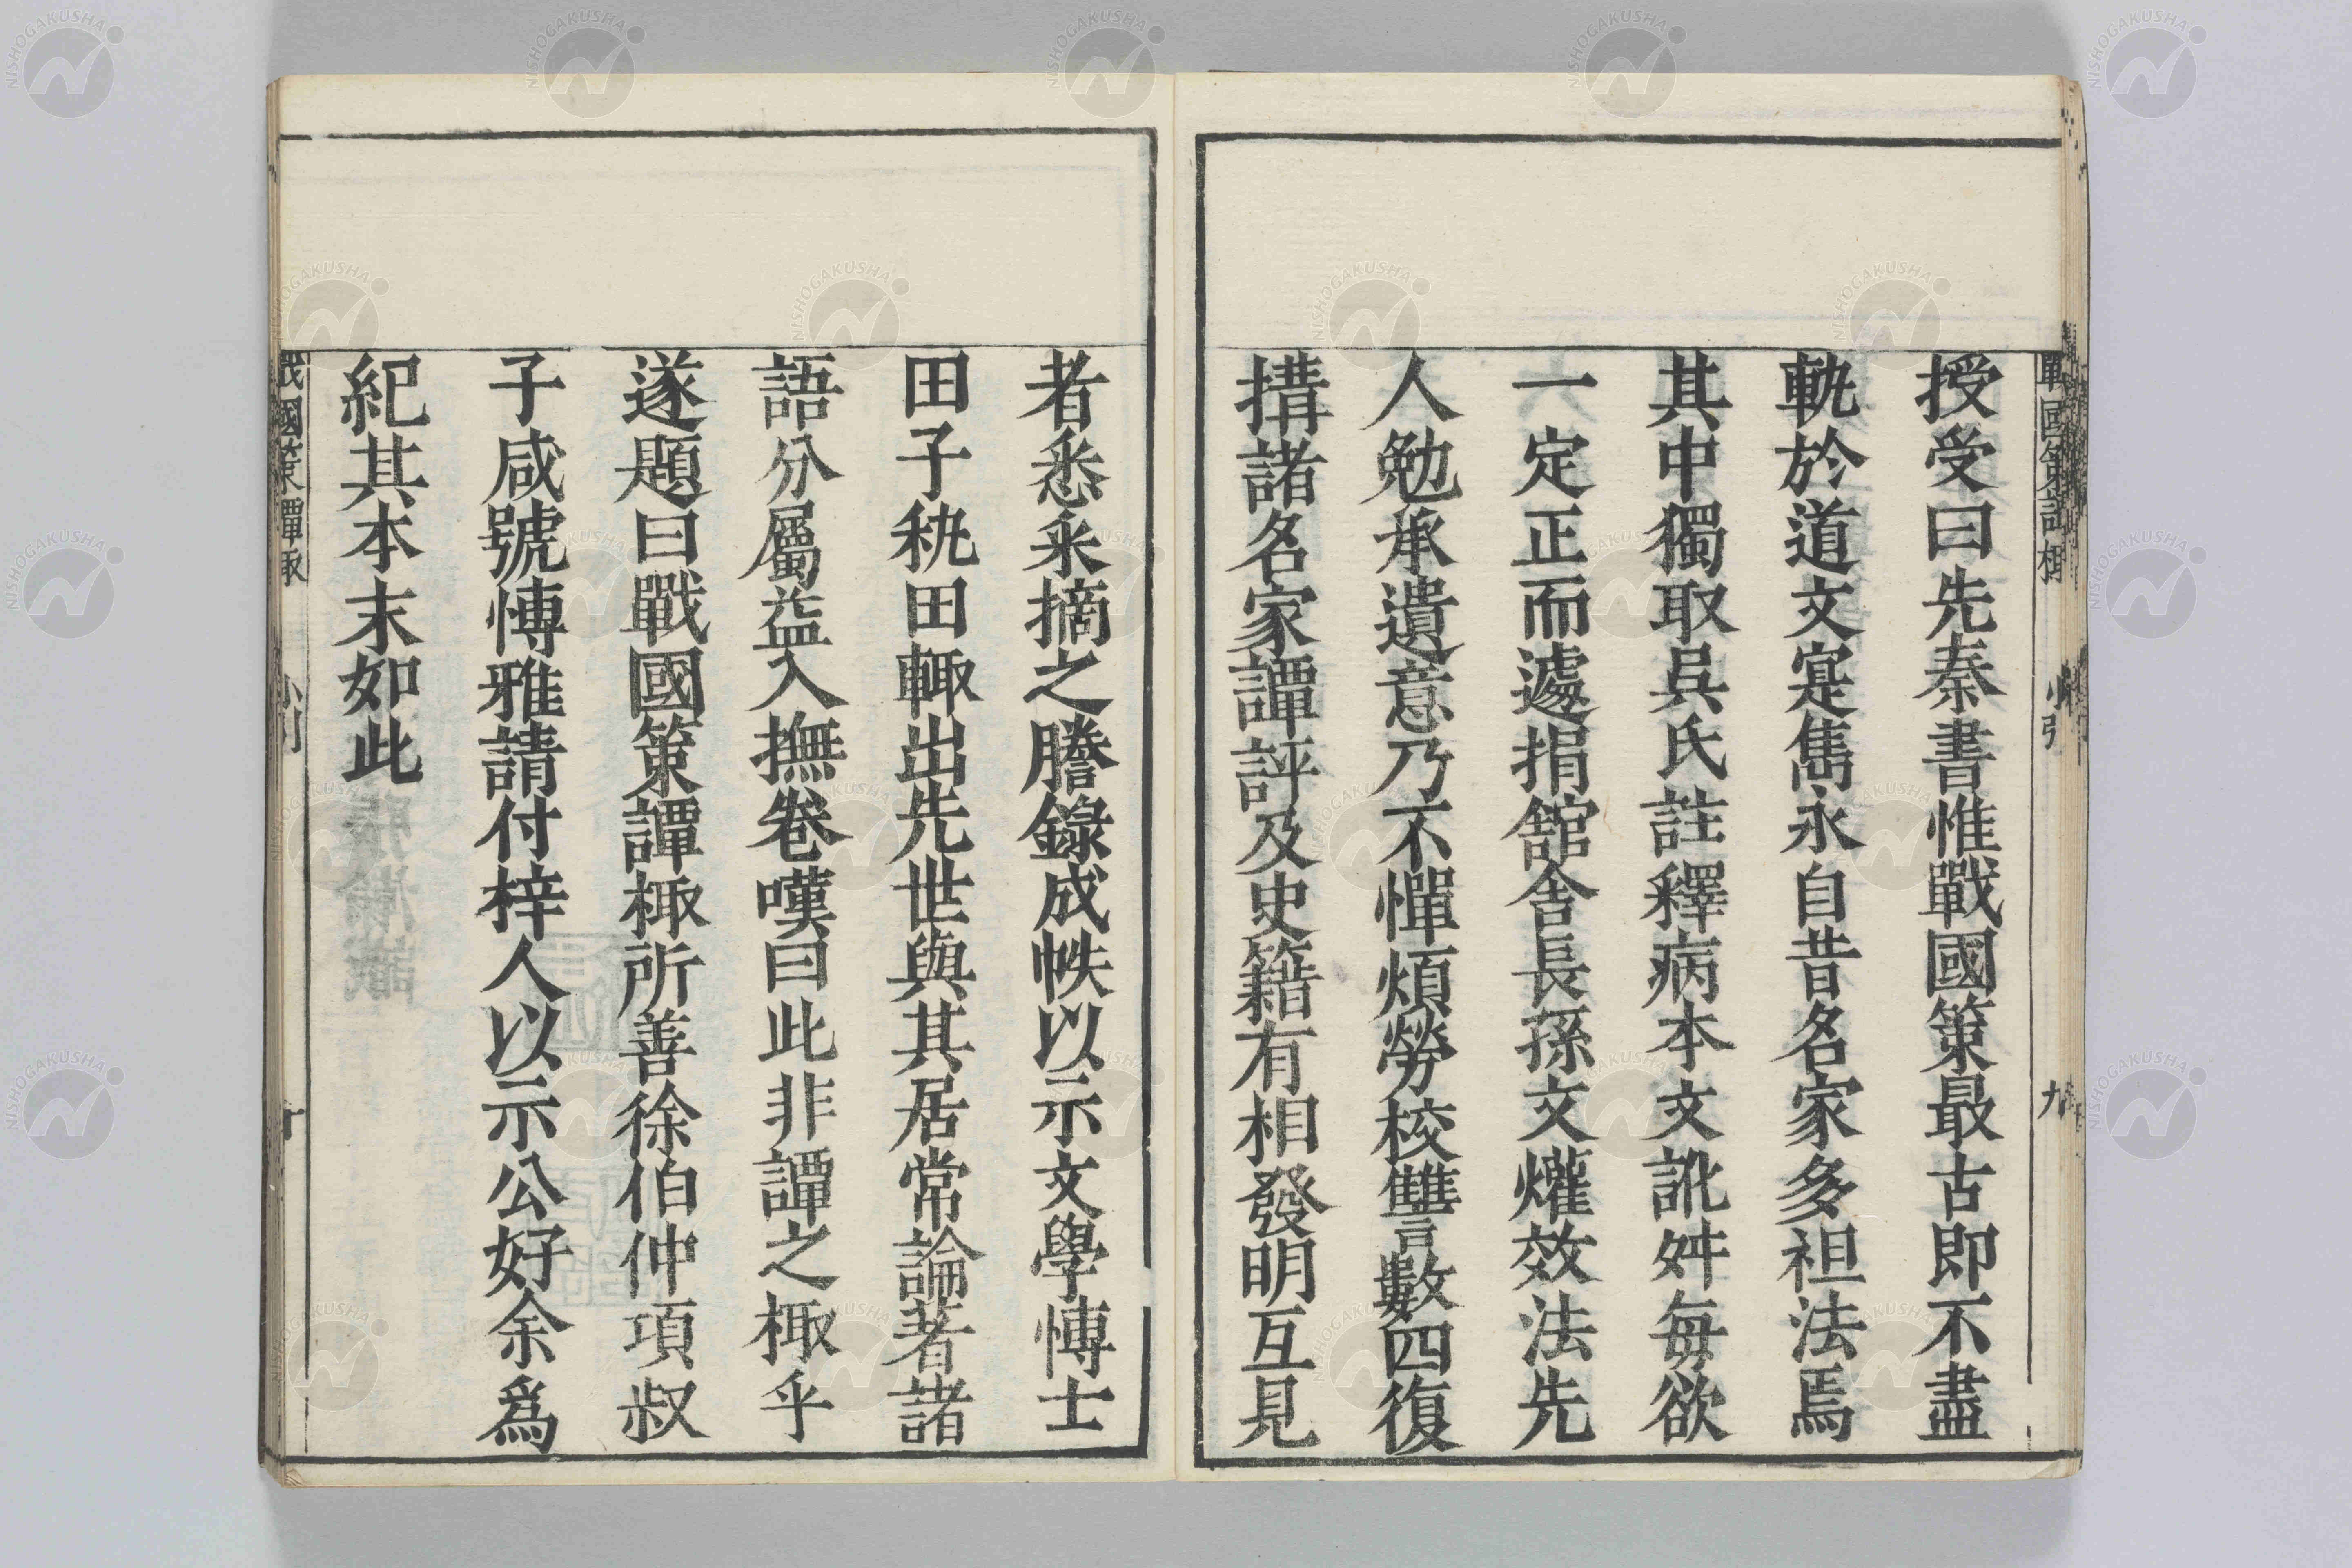 授受曰先秦書惟戰國策最古即不盡
軌於道文寔雋永自昔名家多袒法焉
其中獨取吳氏註釋病本文訛舛每欲
一定正而遽捐舘舍長孫文爟效法先
人勉承遺意乃不憚煩勞校讐數四復
搆諸名家譚評及史籍有相發明互見
者悉采摘之謄錄成帙以示文學博士
田子秇田輙出先世與其居常論著諸
語分屬益入撫卷嘆曰此非譚之棷乎
遂題曰戰國策譚棷所善徐伯仲項叔
子咸號博雅請付梓人以示公好余爲
紀其本末如此
戰國策譚棷 小引
NISHOGAKUSHA